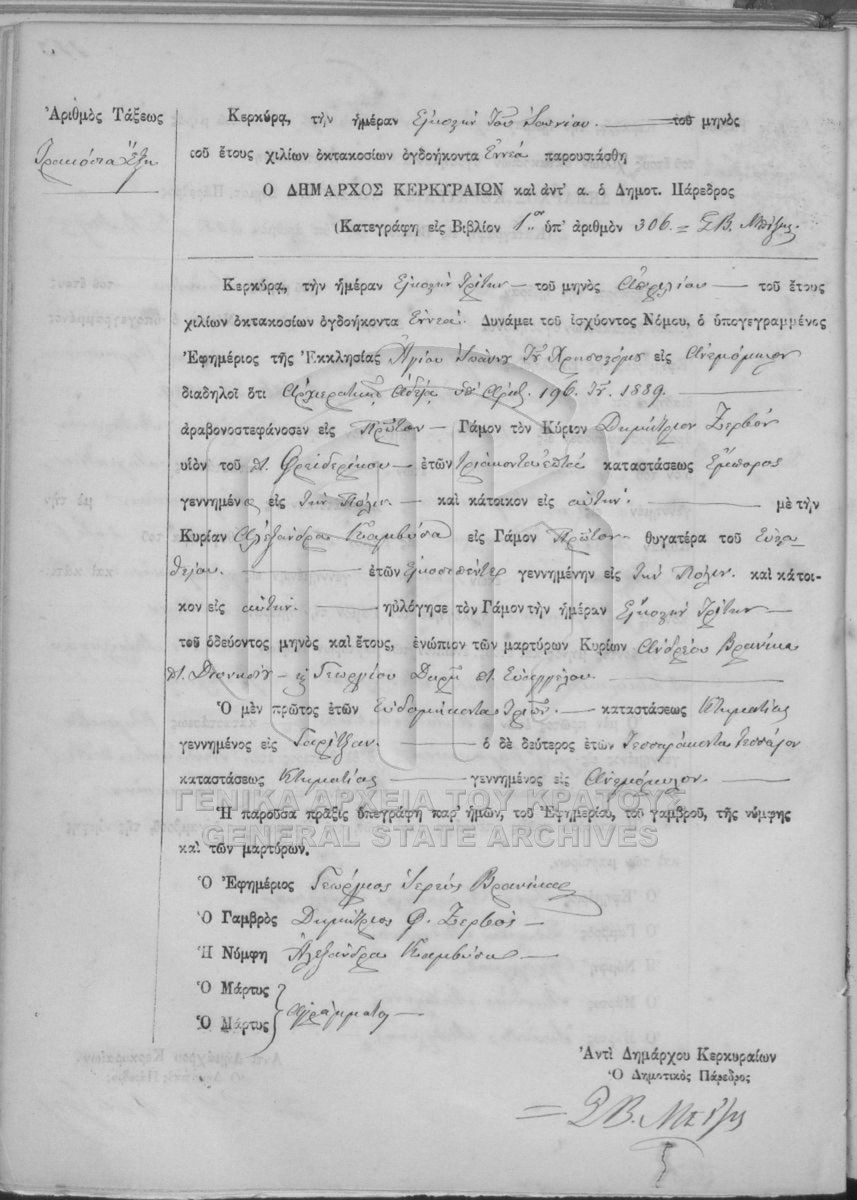 Ἀριθμὸς Τάξεως
Τριακόσια ἕξη
Κερκύρα, τὴν ἡμέραν Εἰκοστὴν Τοῦ Ἰουνίου. τοῦ μηνὸς
τοῦ ἔτους χιλίων ὀκτακοσίων ὀγδοήκοντα Ἐννέα παρουσιάσθη
Ὁ ΔΗΜΑΡΧΟΣ ΚΕΡΚΥΡΑΙΩΝ καὶ ἀντ' α. ὁ Δημοτ. Πάρεδρος
(Κατεγράφη εἰς Βιβλίον 1ον ὑπ' ἀριθμὸν 306. =
Κερκύρα, τὴν ἡμέραν Εἰκοστὴν Τρίτην τοῦ μηνὸς Ἀπριλίου τοῦ ἔτους
χιλίων ὀκτακοσίων ὀγδοήκοντα Ἐννέα. Δυνάμει τοῦ ἰσχύοντος Νόμου, ὁ ὑπογεγραμμένος
Ἐφημέριος τῆς Ἐκκλησίας Ἁγίου Ἰωάννου Τοῦ Χρυσοστόμου εἰς Ἀνεμόμυλον
διαδηλοῖ ὅτι Ἀρχιερατικῇ Ἀδείᾳ ὑπ' Ἀριθ. 196. 1889.
ἀραβονοστεφάνοσεν εἰς Πρῶτον Γάμον τὸν Κύριον Δημήτριον Ζερβὸν
υἱὸν τοῦ π. Φρειδερίκου ἐτῶν τριάκοντα ἑπτὰ καταστάσεως Ἔμπορος
γεννημένο εἰς τὴν Πόλιν καὶ κάτοικον εἰς αὐτήν. μὲ τὴν
Κυρίαν Ἀλεξάνδρα Κιαμβύσα εἰς Γάμον Πρῶτον θυγατέρα τοῦ Εὐστα
θείου. ἐτῶν Εἰκοσιπέντε γεννημένην εἰς τὴν Πόλιν. καὶ κάτοι-
κον εἰς αὐτήν. ηὐλόγησε τὸν Γάμον τὴν ἡμέραν Εἰκοστὴν Τρίτην
τοῦ ὁδεύοντος μηνὸς καὶ ἔτους, ἐνώπιον τῶν μαρτύρων Κυρίων Ἀνδρέου Βρανίκα
π. Διονυσίου κ Γεωργίου π. Εὐαγγέλου.
Ὁ μὲν πρῶτος ἐτῶν Ἑβδομήκοντα Τριῶν. καταστάσεως Κτηματίας
γεννημένος εἰς Γαρίτζαν. ὁ δὲ δεύτερος ἐτῶν Τεσσαράκοντα Τεσσάρων
καταστάσεως Κτηματίας γεννημένος εἰς Ἀνεμόμυλον.
Ἡ παροῦσα πρᾶξις ὑπεγράφη παρ' ἡμῶν, τοῦ Ἐφημερίου, τοῦ γαμβροῦ, τῆς νύμφης
καὶ τῶν μαρτύρων.
Ὁ Ἐφημέριος Γεώργιος Ἱερεύς Βρανίκας
Ὁ Γαμβρὸς Δημήτριος Φ. Ζερβός
Ἡ Νύμφη Ἀλεξάνδρα Κιαμβύσα
Ὁ Μάρτυς
Ὁ Μάρτυς
ἀγράμματοι
Ἀντὶ Δημάρχου Κερκυραίων
Ὁ Δημοτικὸς Πάρεδρος
ΓΕΝΙΚΑ ΑΡΧΕΙΑ ΤΟΥ ΚΡΑΤΟΥΣ
GENERAL STATE ARCHIVES